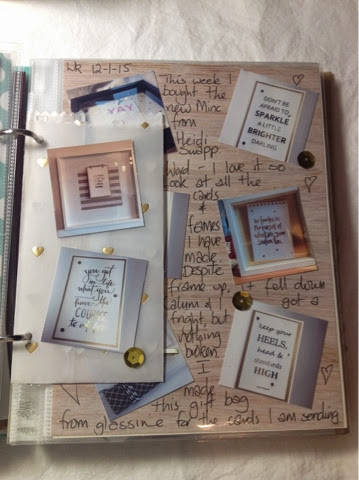 Wk 12-1-15
This week I
bought the
new Minc
from
Heidi
Swapp
Wow - I love it so
look at all the
cards
&
frames
I have
made
Despite
frame up, it fell down
alum & I got a
fright, but
nothing
broken
I
made
this gift bag
from glossine for the cards I am sending
YAY
DON'T BE
AFRAID TO
SPARKLE
A LITTLE
BRIGHTER
DARLING
you get
in life
what you
have the
COURAGE
to
keep your
HEELS,
head &
standards
HIGH